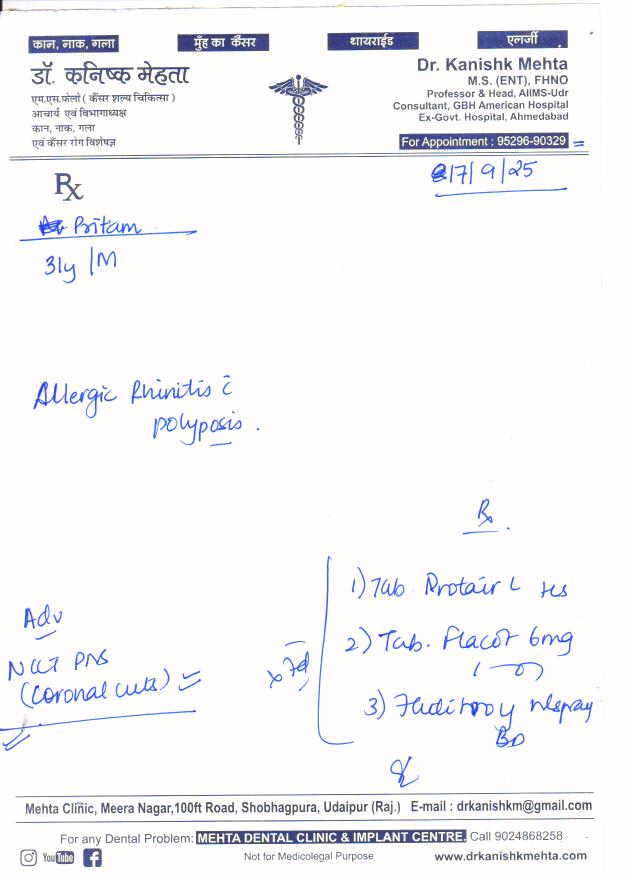 कान, नाक, गला
मुँह का कैंसर
थायराईड
एलर्जी
डॉ. कनिष्क मेहता
एम.एस.फेलो ( कैंसर शल्य चिकित्सा )
आचार्य एवं विभागाध्यक्ष
कान, नाक, गला
एवं कैंसर रोग विशेषज्ञ
Dr. Kanishk Mehta
M.S. (ENT), FHNO
Professor & Head, AIIMS-Udr
Consultant, GBH American Hospital
Ex-Govt. Hospital, Ahmedabad
For Appointment : 95296-90329
Rx
17/9/25
Pritam
31y/M
Allergic Rhinitis c̄
polyposis.
Rx.
1) Tab. L HS
2) Tab. Flacot 6mg
3) nspray
BD
x 7d
Adv
NCCT PNS
(coronal cuts)
Mehta Clinic, Meera Nagar,100ft Road, Shobhagpura, Udaipur (Raj.) E-mail : drkanishkm@gmail.com
For any Dental Problem: MEHTA DENTAL CLINIC & IMPLANT CENTRE. Call 9024868258
YouTube
Not for Medicolegal Purpose
www.drkanishkmehta.com